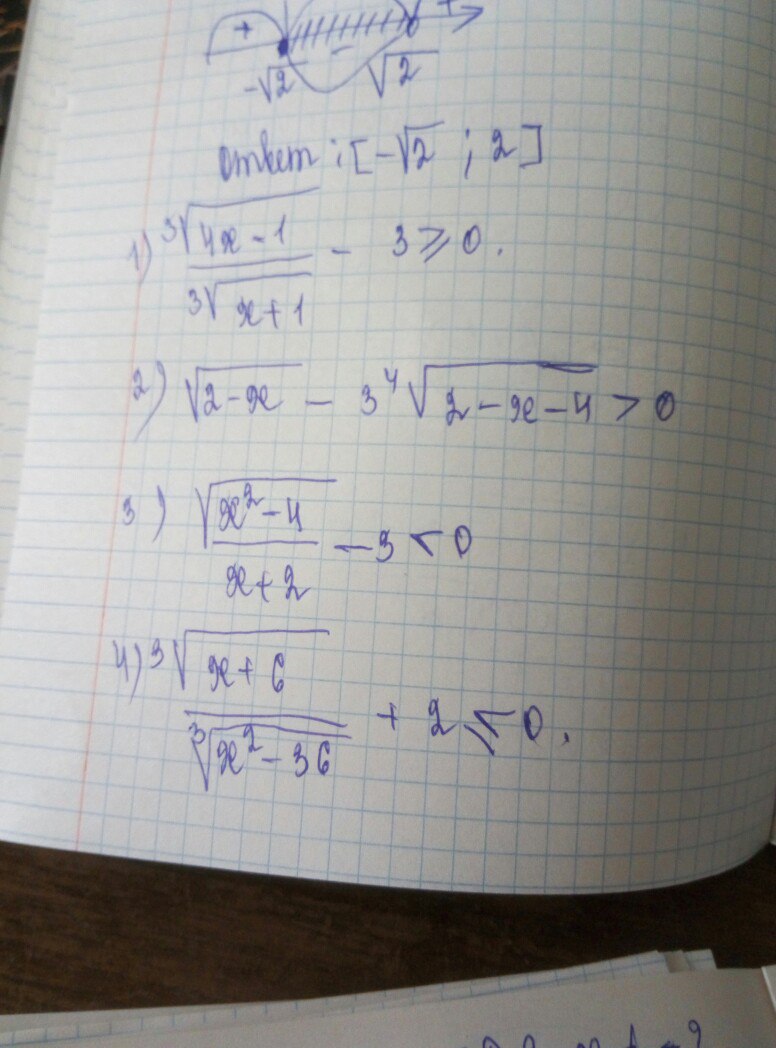 + - +
-√2 √2
ответ : [-√2 ; 2]
1) ³√(4x-1) / ³√(x+1) - 3 ⩾ 0.
2) √(2-x) - 3 ⁴√(2-x-4) > 0
3) √(x²-4) / (x+2) - 3 < 0
4) ³√(x+6) / ³√(x²-36) + 2 ⩽ 0.